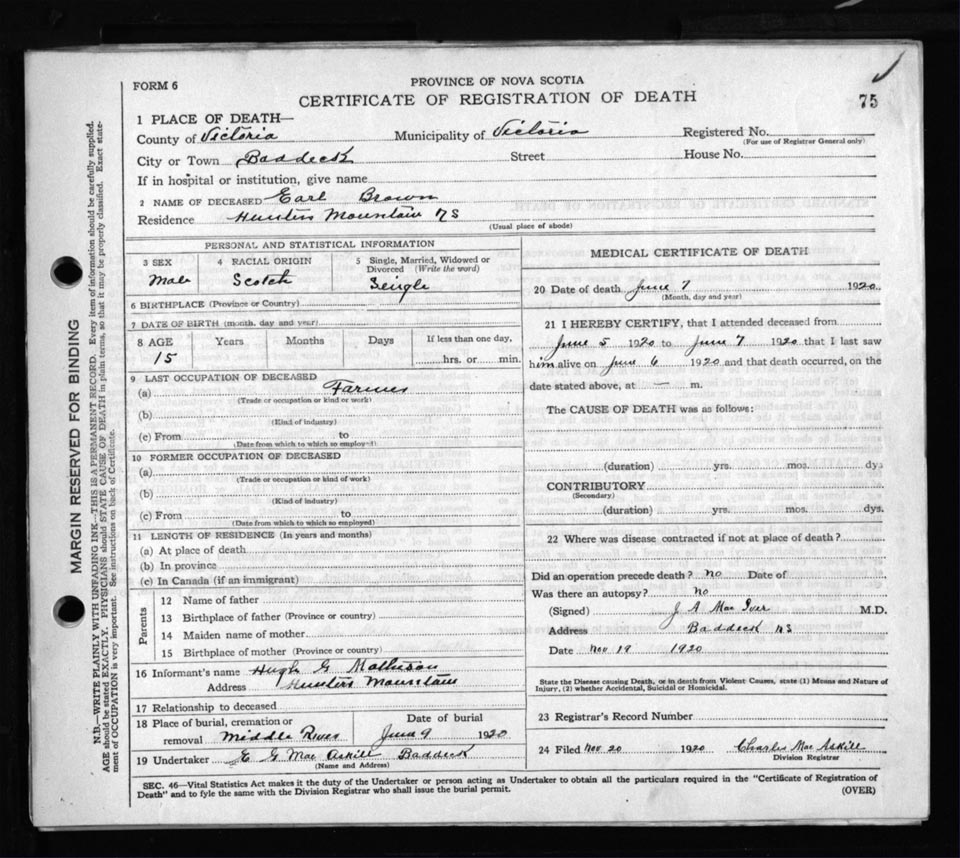 FORM 6
PROVINCE OF NOVA SCOTIA
CERTIFICATE OF REGISTRATION OF DEATH
75
1 PLACE OF DEATH—
County of Victoria Municipality of Victoria Registered No.
(For use of Registrar General only)
City or Town Baddeck Street House No.
If in hospital or institution, give name
2 NAME OF DECEASED Earl Brown
Residence Hunters Mountain NS
(Usual place of abode)
PERSONAL AND STATISTICAL INFORMATION
3 SEX 4 RACIAL ORIGIN 5 Single, Married, Widowed or Divorced (Write the word)
Male Scotch Seingle
6 BIRTHPLACE (Province or Country)
7 DATE OF BIRTH (month, day and year)
8 AGE Years Months Days If less than one day,
15 hrs. or min.
9 LAST OCCUPATION OF DECEASED
(a) Farmer
(Trade or occupation or kind of work)
(b)
(Kind of industry)
(c) From to
(Date from which to which so employed)
10 FORMER OCCUPATION OF DECEASED
(a)
(Trade or occupation or kind of work)
(b)
(Kind of industry)
(c) From to
(Date from which to which so employed)
11 LENGTH OF RESIDENCE (In years and months)
(a) At place of death
(b) In province
(c) In Canada (if an immigrant)
Parents
12 Name of father
13 Birthplace of father (Province or country)
14 Maiden name of mother
15 Birthplace of mother (Province or country)
16 Informant's name Hugh G Matheson
Address Hunters Mountain
17 Relationship to deceased
18 Place of burial, cremation or removal Middle River Date of burial June 9 1920
19 Undertaker E G Mac Askill Baddeck
(Name and Address)
MEDICAL CERTIFICATE OF DEATH
20 Date of death June 7 1920
(Month, day and year)
21 I HEREBY CERTIFY, that I attended deceased from
June 5 1920 to June 7 1920 that I last saw
him alive on June 6 1920 and that death occurred, on the
date stated above, at — m.
The CAUSE OF DEATH was as follows:
(duration) yrs. mos. dys
CONTRIBUTORY
(Secondary)
(duration) yrs. mos. dys.
22 Where was disease contracted if not at place of death?
Did an operation precede death? No Date of
Was there an autopsy? No
(Signed) J A Mac Iver M.D.
Address Baddeck NS
Date Nov 19 1920
State the Disease causing Death, or in death from Violent Causes, state (1) Means and Nature of
Injury, (2) whether Accidental, Suicidal or Homicidal.
23 Registrar's Record Number
24 Filed Nov 20 1920 Charles Mac Askill
Division Registrar
SEC. 46—Vital Statistics Act makes it the duty of the Undertaker or person acting as Undertaker to obtain all the particulars required in the "Certificate of Registration of
Death" and to fyle the same with the Division Registrar who shall issue the burial permit.
(OVER)
MARGIN RESERVED FOR BINDING
N.B.—WRITE PLAINLY WITH UNFADING INK—THIS IS A PERMANENT RECORD. Every item of information should be carefully supplied.
AGE should be stated EXACTLY. PHYSICIANS should STATE CAUSE OF DEATH in plain terms, so that it may be properly classified. Exact state-
ment of OCCUPATION is very important. See instructions on back of Certificate.